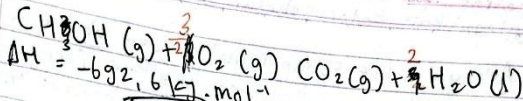 CH3OH (g) + 3/2 O2 (g) CO2(g) + 2 H2O (l)
ΔH = -692,6 kJ.mol-1